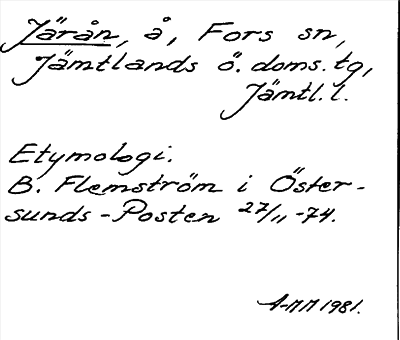 Järån, å, Fors sn,
Jämtlands ö. doms. tg,
Jämtl. l.
Etymologi.
B. Flemström i Öster-
sunds-Posten 27/11 -74.
A-MM 1981.